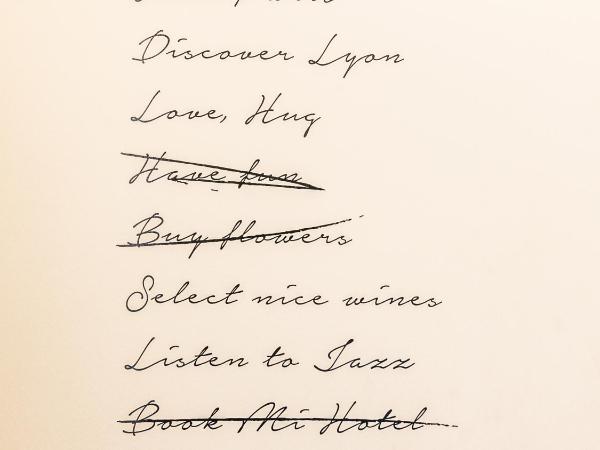 Discover Lyon
Love, Hug
Have fun
Buy flowers
Select nice wines
Listen to Jazz
Book Mi Hotel